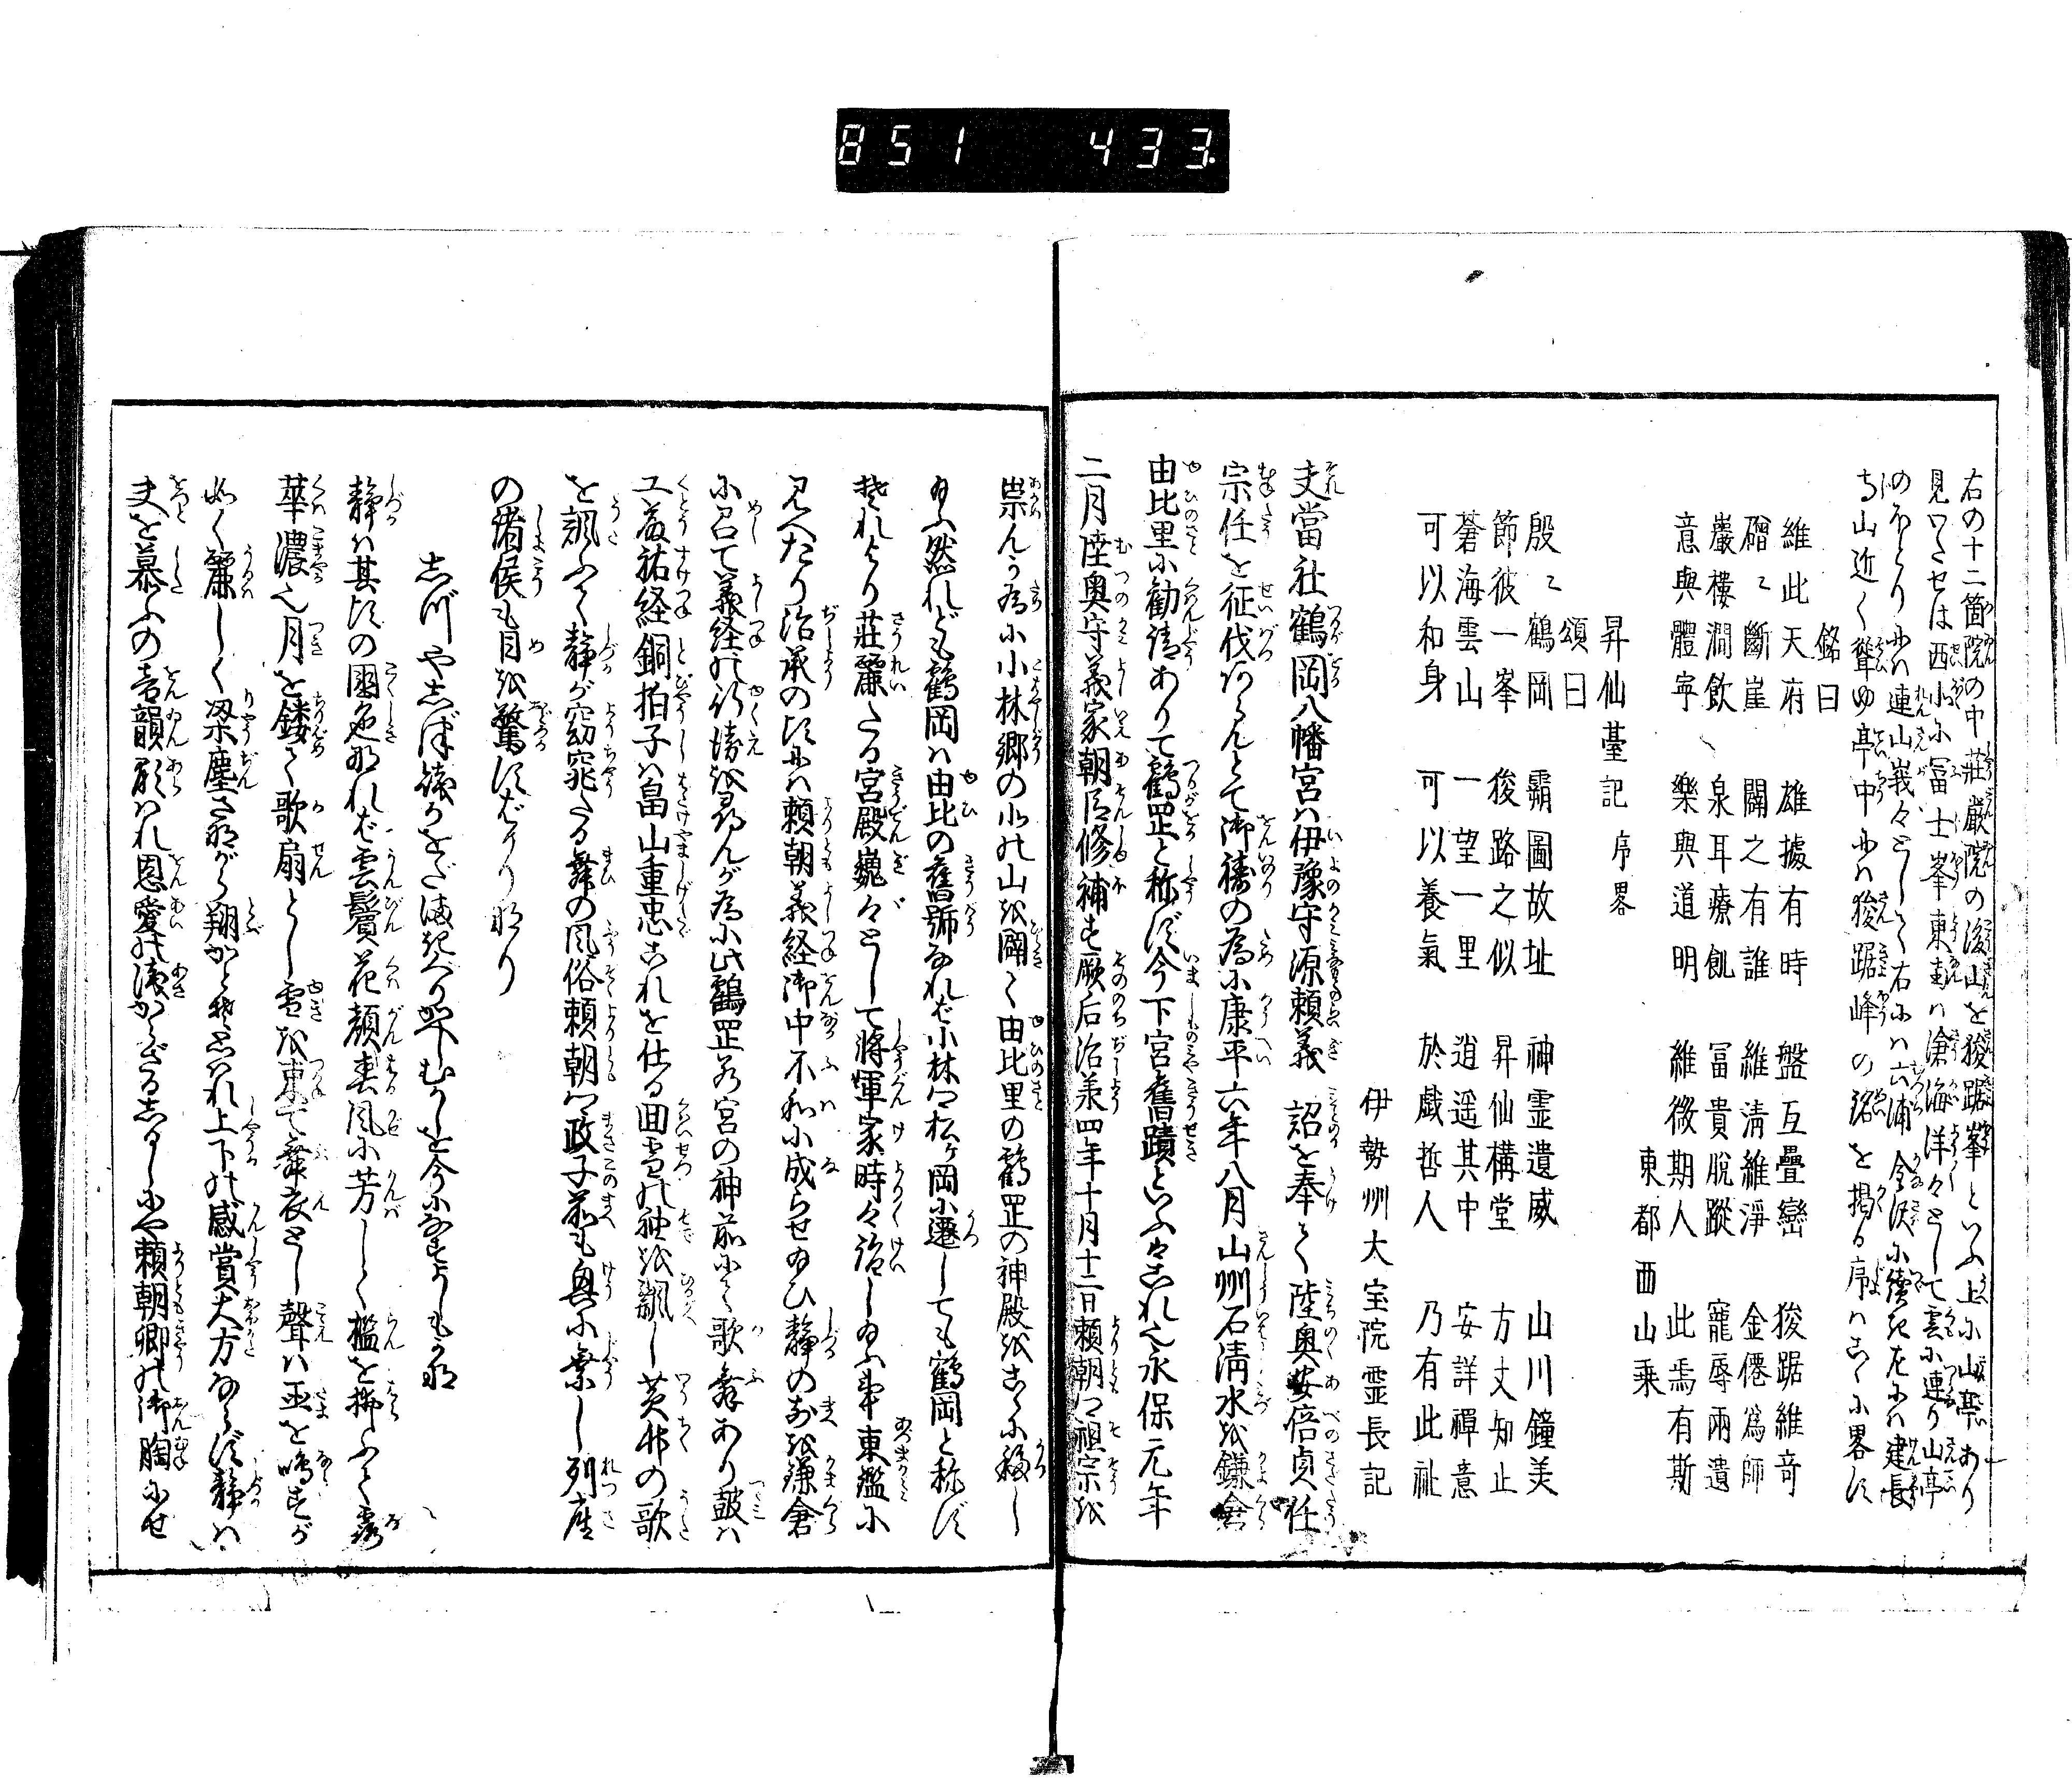 851 433
右の十二箇院の中荘厳院の後山を狻踞峯といふ上に山亭あり
見わたせは西北に冨士峯東南は滄海洋々として雲に連り山亭
のほとりには連山峩々として右には六浦金沢に續き左には建長
寺山近く聳ゆ亭中には狻踞峰の銘を掲る序はこゝに畧す
銘曰
維此天府 雄據有時 盤互疊巒 狻踞維奇
磳〻斷崖 闢之有誰 維清維淨 金僊爲師
巖樓澗飲 泉耳療飢 冨貴脱蹤 寵辱兩遺
意與體寧 樂興道明 維微期人 此焉有斯
東都西山乗
昇仙臺記 序畧
頌曰
殷〻鶴岡 霸圖故址 神霊遺威 山川鐘美
節彼一峯 俊路之似 昇仙構堂 方丈知止
蒼海雲山 一望一里 逍遥其中 安詳禪意
可以和身 可以養氣 於戯哲人 乃有此祉
伊勢州大宝院霊長記
夫當社鶴岡八幡宮は伊豫守源頼義 詔を奉て陸奥安倍貞任
宗任を征伐あらんとて御祷の為に康平六年八月山州石清水を鎌倉
由比里に勧請ありて鶴岡と称す今下宮舊蹟といふはこれ也永保元年
二月陸奥守義家朝臣修補す厥后治承四年十月十二日頼朝は祖宗を
崇んか為に小林郷の北の山を闢て由比里の鶴岡の神殿をこゝに移し
給ふ然れども鶴岡は由比の舊號なれば小林は松ヶ岡に遷しても鶴岡と称す
それより荘麗たる宮殿巍々として将軍家時々詣し給ふ事東鑑に
見へたり治承の頃には頼朝義経御中不和に成らせ給ひ静のおを鎌倉
に召て義経の行衛を尋んが為に此鶴岡若宮の神前にて歌舞あり皷は
工藤祐経銅拍子は畠山重忠これを仕る回雪の袖を飜し黄竹の歌
を諷ふて静が窈窕たる舞の風俗頼朝は政子前も興に乗し列座
の諸侯も目を驚すばかりなり
志川や志ば錢のをだ満起くり返しむかしを今になすよしもかな
静は其頃の國色なれば雲鬢花顔春風に芳しく檻を拂ふて露
華濃也月を鏤て歌扇とし雪を束て舞衣とし聲は玉を鳴すが
如く麗しく梁塵さながら翔かと疑はれ上下の感賞大方ならず静は
夫を慕ふの音韻顕はれ恩愛の浅からざる志るしにや頼朝卿の御胸にせ